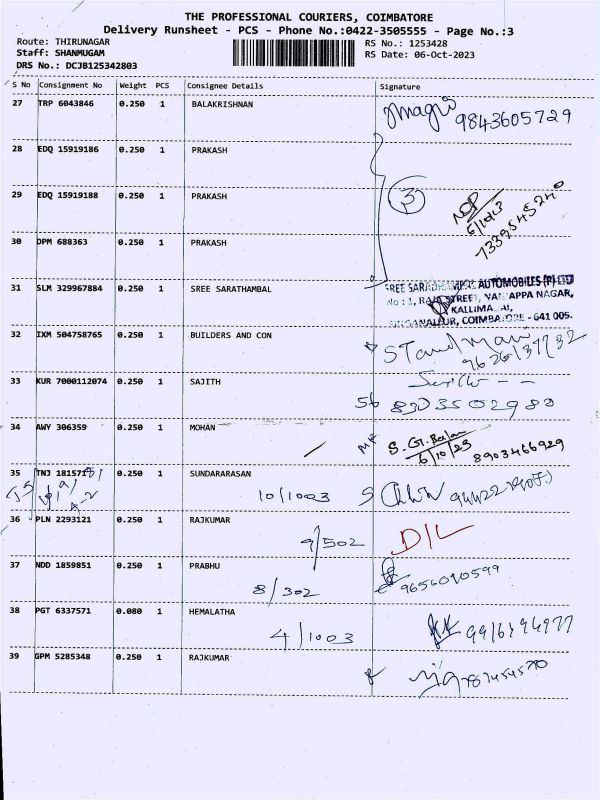 THE PROFESSIONAL COURIERS, COIMBATORE
Delivery Runsheet - PCS - Phone No.:0422-3505555 - Page No.:3
Route: THIRUNAGAR RS No.: 1253428
Staff: SHANMUGAM RS Date: 06-Oct-2023
DRS No.: DCJB125342803
S No Consignment No Weight PCS Consignee Details Signature
27 TRP 6043846 0.250 1 BALAKRISHNAN 9843605729
28 EDQ 15919186 0.250 1 PRAKASH
29 EDQ 15919188 0.250 1 PRAKASH 3
6/10/23
30 DPM 688363 0.250 1 PRAKASH
31 SLM 329967884 0.250 1 SREE SARATHAMBAL
AUTOMOBILES (P) LTD
No : 1, RAJA STREET, NAGAR,
COIMBATORE - 641 005.
32 IXM 504758765 0.250 1 BUILDERS AND CON
33 KUR 7000112074 0.250 1 SAJITH
8303502980
34 AWY 306359 0.250 1 MOHAN
6/10/23 8903466929
35 TNJ 0.250 1 SUNDARARASAN
10/1003
36 PLN 2293121 0.250 1 RAJKUMAR
9/502 D/L
37 NDD 1859851 0.250 1 PRABHU
8/302 9656010599
38 PGT 6337571 0.080 1 HEMALATHA
4/1003
39 GPM 5285348 0.250 1 RAJKUMAR